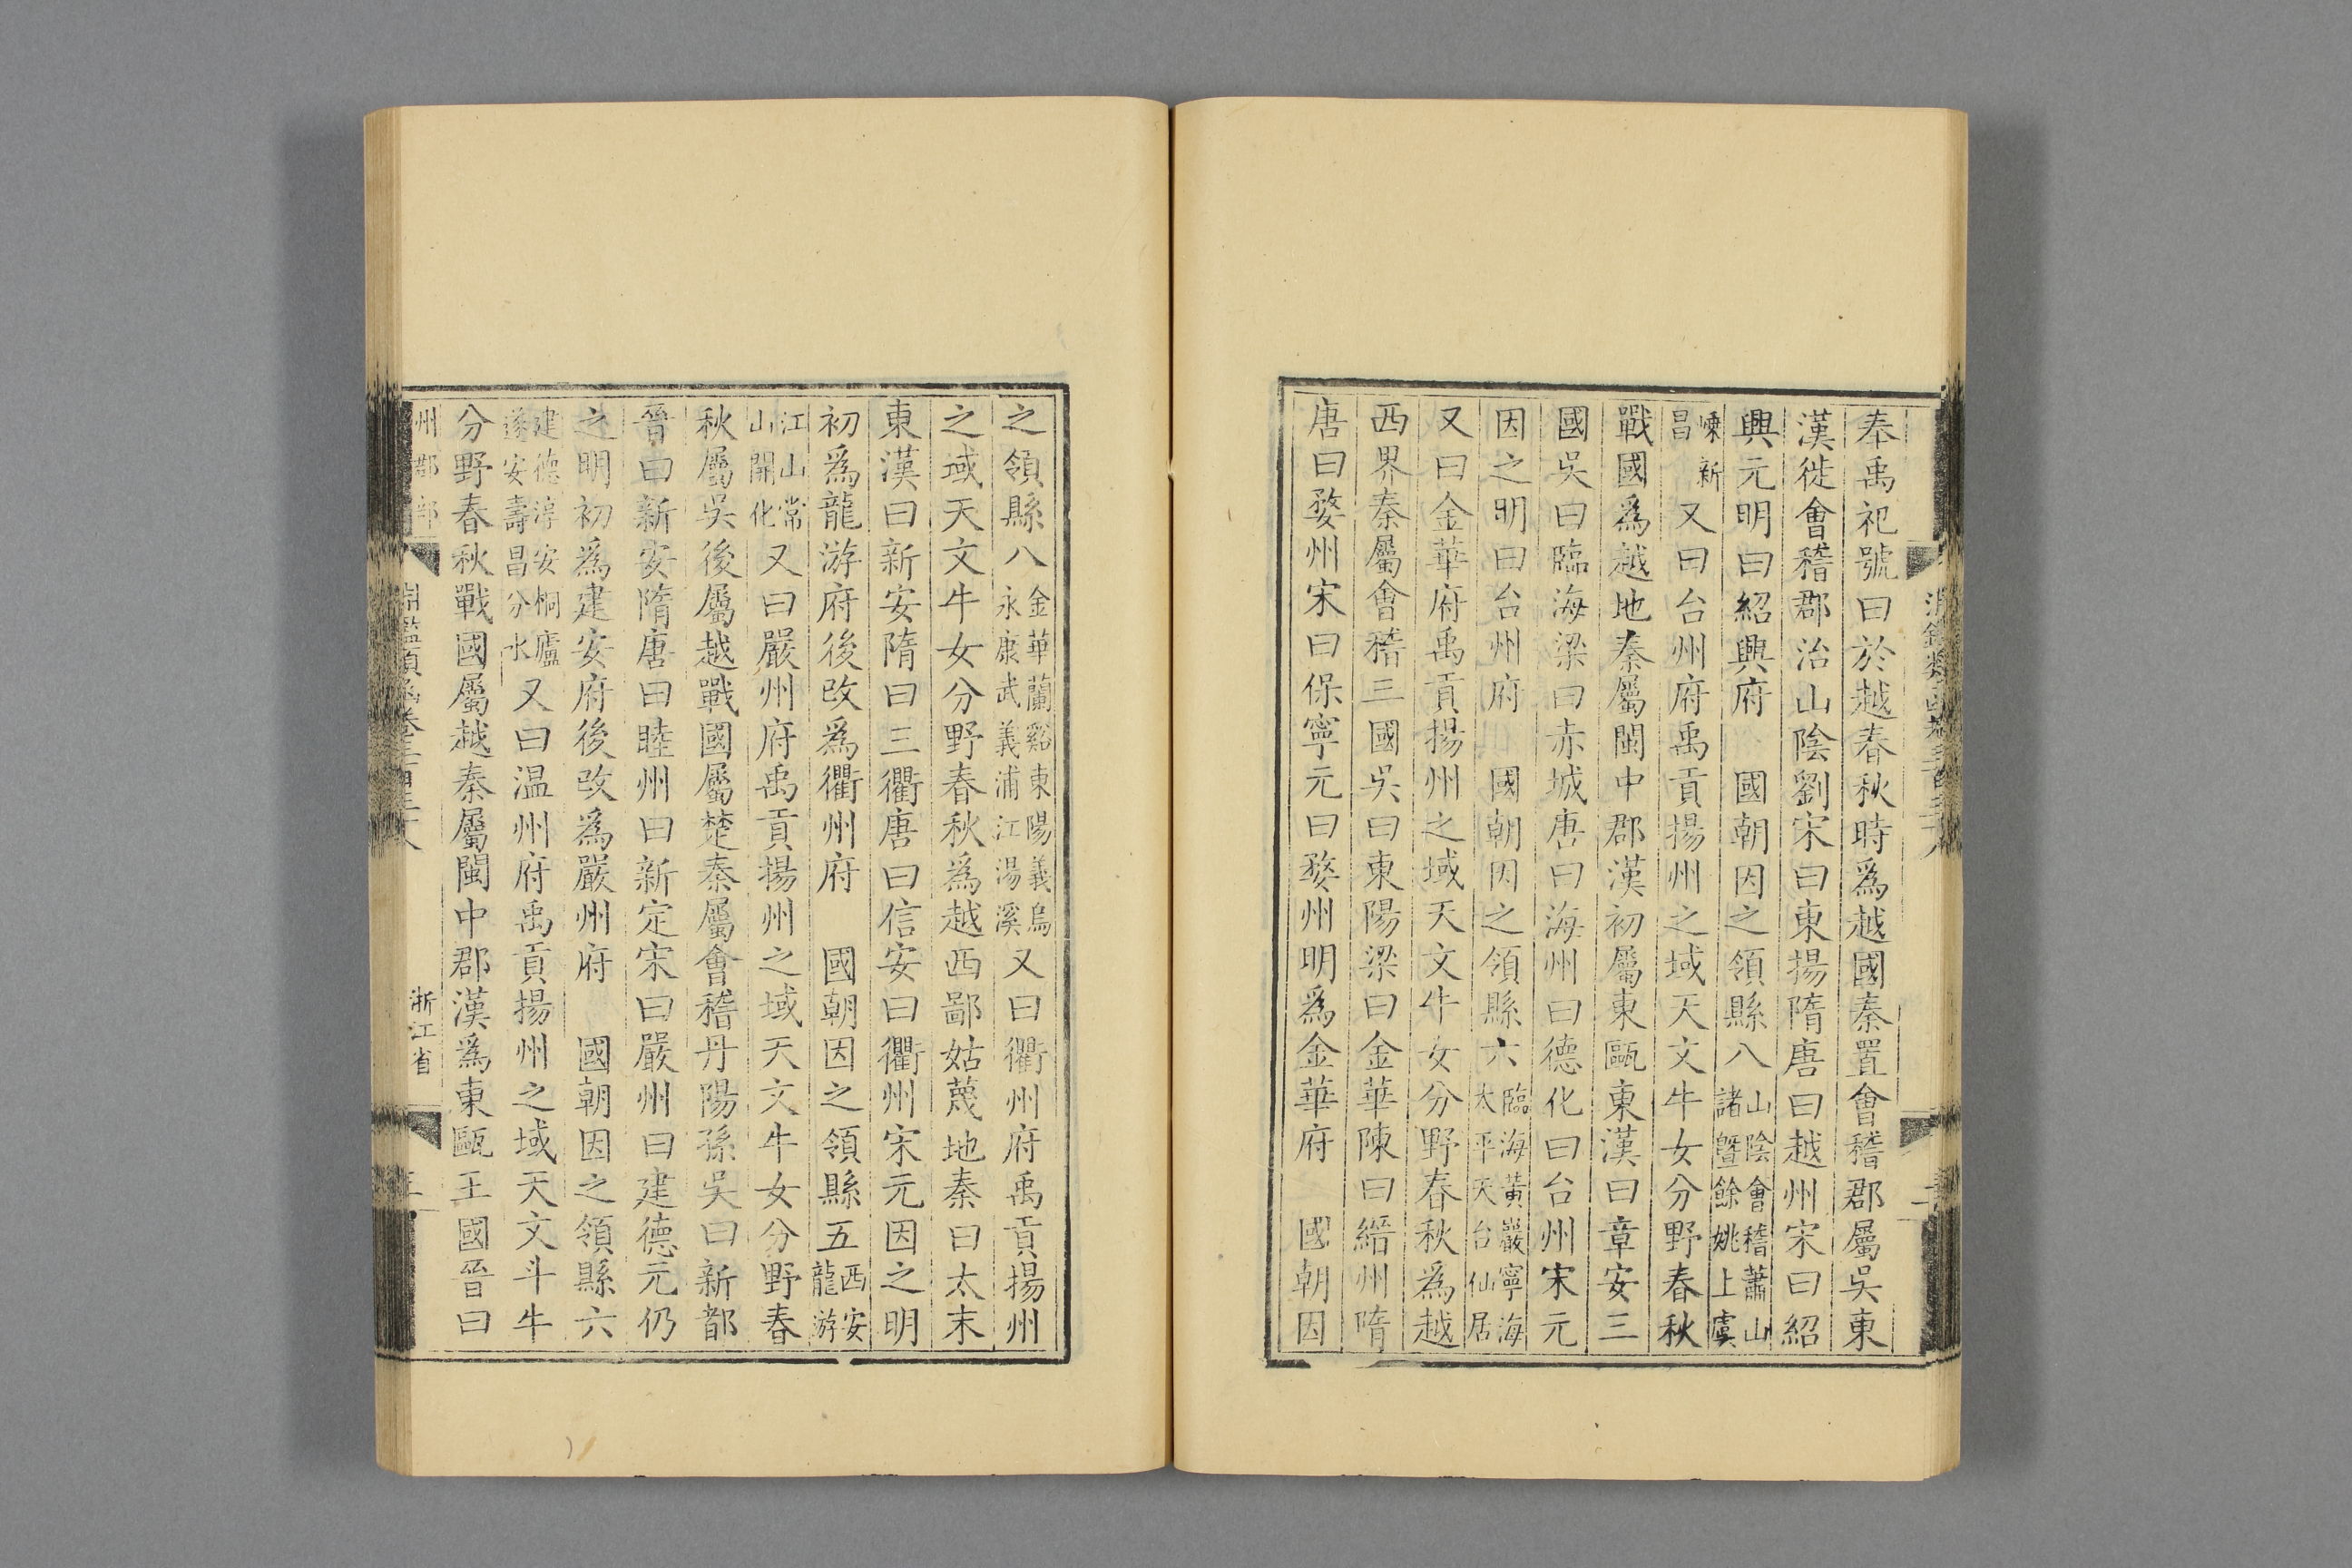 奉禹祀號曰於越春秋時爲越國秦置會稽郡屬吳東
漢徙會稽郡治山陰劉宋曰東揚隋唐曰越州宋曰紹
興元明曰紹興府　國朝因之領縣八山陰會稽蕭山諸暨餘姚上虞
嵊新昌又曰台州府禹貢揚州之域天文牛女分野春秋
戰國爲越地秦屬閩中郡漢初屬東甌東漢曰章安三
國吳曰臨海梁曰赤城唐曰海州曰德化曰台州宋元
因之明曰台州府　國朝因之領縣六臨海黃巖寧海太平天台仙居
又曰金華府禹貢揚州之域天文牛女分野春秋爲越
西界秦屬會稽三國吳曰東陽梁曰金華陳曰縉州隋
唐曰婺州宋曰保寧元曰婺州明爲金華府　國朝因
之領縣八金華蘭谿東陽義烏永康武義浦江湯溪又曰衢州府禹貢揚州
之域天文牛女分野春秋爲越西鄙姑蔑地秦曰太末
東漢曰新安隋曰三衢唐曰信安曰衢州宋元因之明
初爲龍游府後改爲衢州府　國朝因之領縣五西安龍游
江山常山開化又曰嚴州府禹貢揚州之域天文牛女分野春
秋屬吳後屬越戰國屬楚秦屬會稽丹陽孫吳曰新都
晉曰新安隋唐曰睦州曰新定宋曰嚴州曰建德元仍
之明初爲建安府後改爲嚴州府　國朝因之領縣六
建德淳安桐廬遂安壽昌分水又曰温州府禹貢揚州之域天文斗牛
分野春秋戰國屬越秦屬閩中郡漢爲東甌王國晉曰
州郡部
浙江省